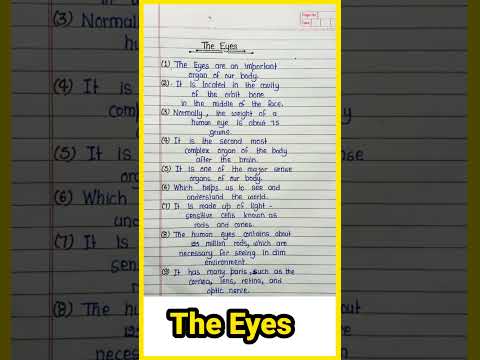 The Eyes
(1) The Eyes are an important
organ of our body.
(2). It is located in the cavity
of the orbit bone
in the middle of the face.
(3) Normally, the weight of a
human eye is about 7.5
grams.
(4) It is the second most
complex organ of the body
after the brain.
(5) It is one of the major sense
organs of our body.
(6) Which helps us to see and
understand the world.
(7) It is made up of light-
sensitive cells known as
rods and cones.
(8) The human eyes contains about
125 million rods, which are
necessary for seeing in dim
environment.
(9) It has many parts, such as the
cornea, lens, retina, and
optic nerve.
The Eyes
(3) Normally
(4) It is
(5) It is
(6) Which
(7) It is
(8) The hu